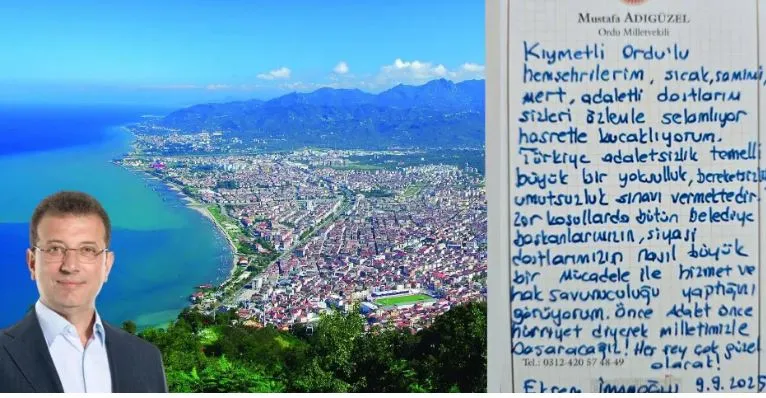 Mustafa ADIGÜZEL
Ordu Milletvekili
Kıymetli Ordu'lu
hemşehrilerim, sıcak, samimi,
mert, adaletli dostlarım
sizleri özlemle selamlıyor
hasretle kucaklıyorum.
Türkiye adaletsizlik temelli
büyük bir yoksulluk, bereketsizlik
umutsuzluk sınavı vermektedir.
Zor koşullarda bütün belediye
başkanlarımızın, siyasi
dostlarımızın nasıl büyük
bir mücadele ile hizmet ve
hak savunuculuğu yaptığını
görüyorum. Önce Adalet önce
hürriyet diyerek milletimizle
başaracağız! Her şey çok güzel
olacak!
Tel.: 0312-420 57 48-49
Ekrem İmamoğlu 9.9.2025